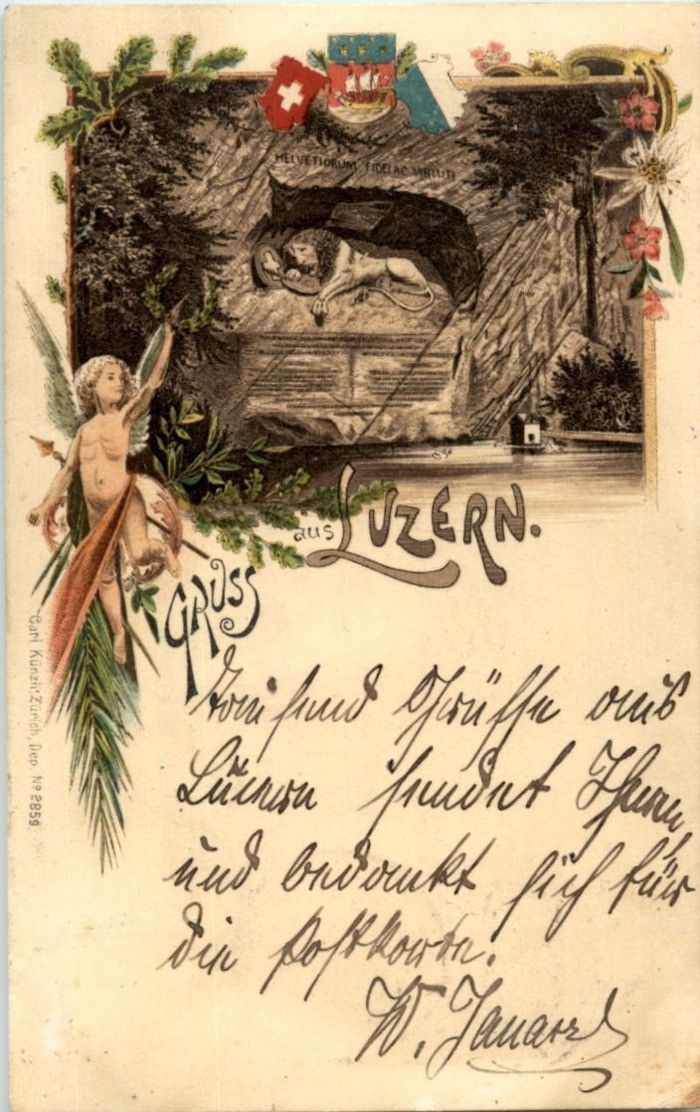 HELVETIORUM FIDEI AC VIRTUTI
Gruss
aus Luzern.
Tausend Grüsse aus
Luzern sendet Ihnen
und bedankt sich für
die Postkarte.
W.
Carl Künzli, Zürich, Dep. No 2859